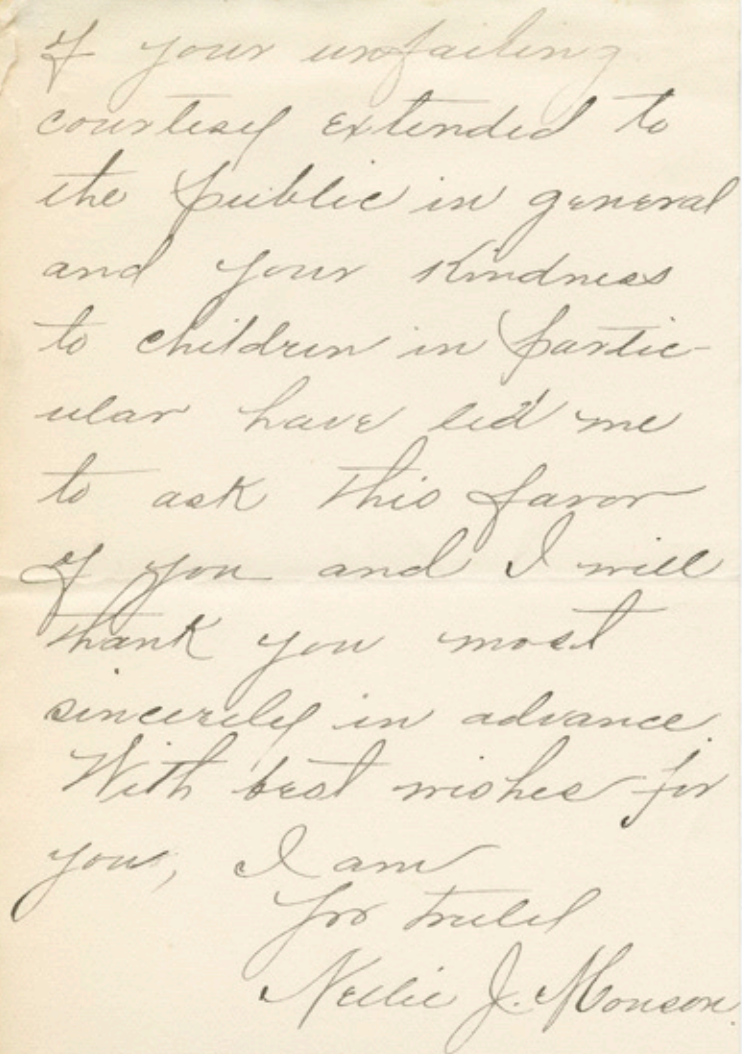 of your unfailing
courtesy extended to
the public in general
and your kindness
to children in partic-
ular have led me
to ask this favor
of you and I will
thank you most
sincerely in advance.
With best wishes for
you, I am
Yrs truly
Nellie J. Monson.